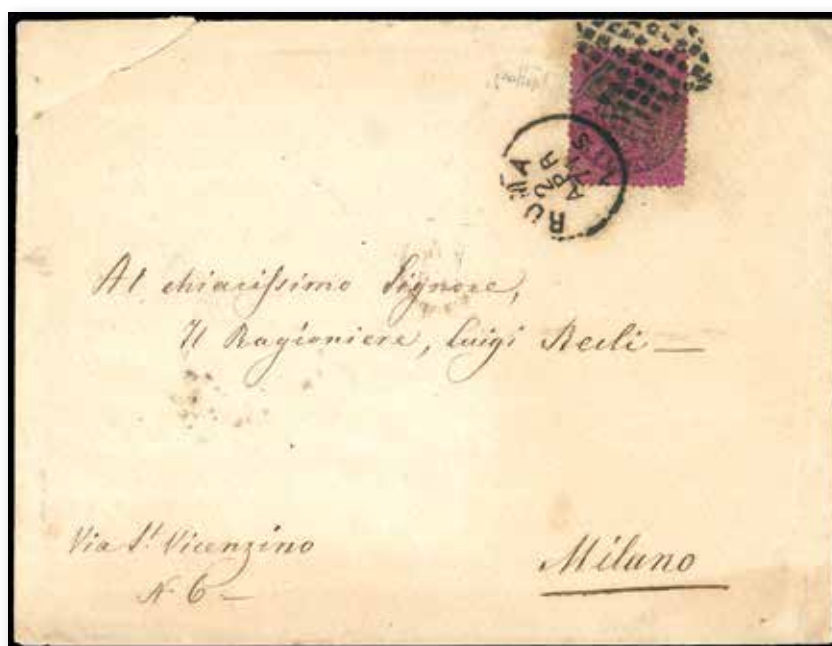 ROMA
Al chiarissimo Signore,
Il Ragioniere, Luigi
Via St Vicenzino
N. 6 –
Milano